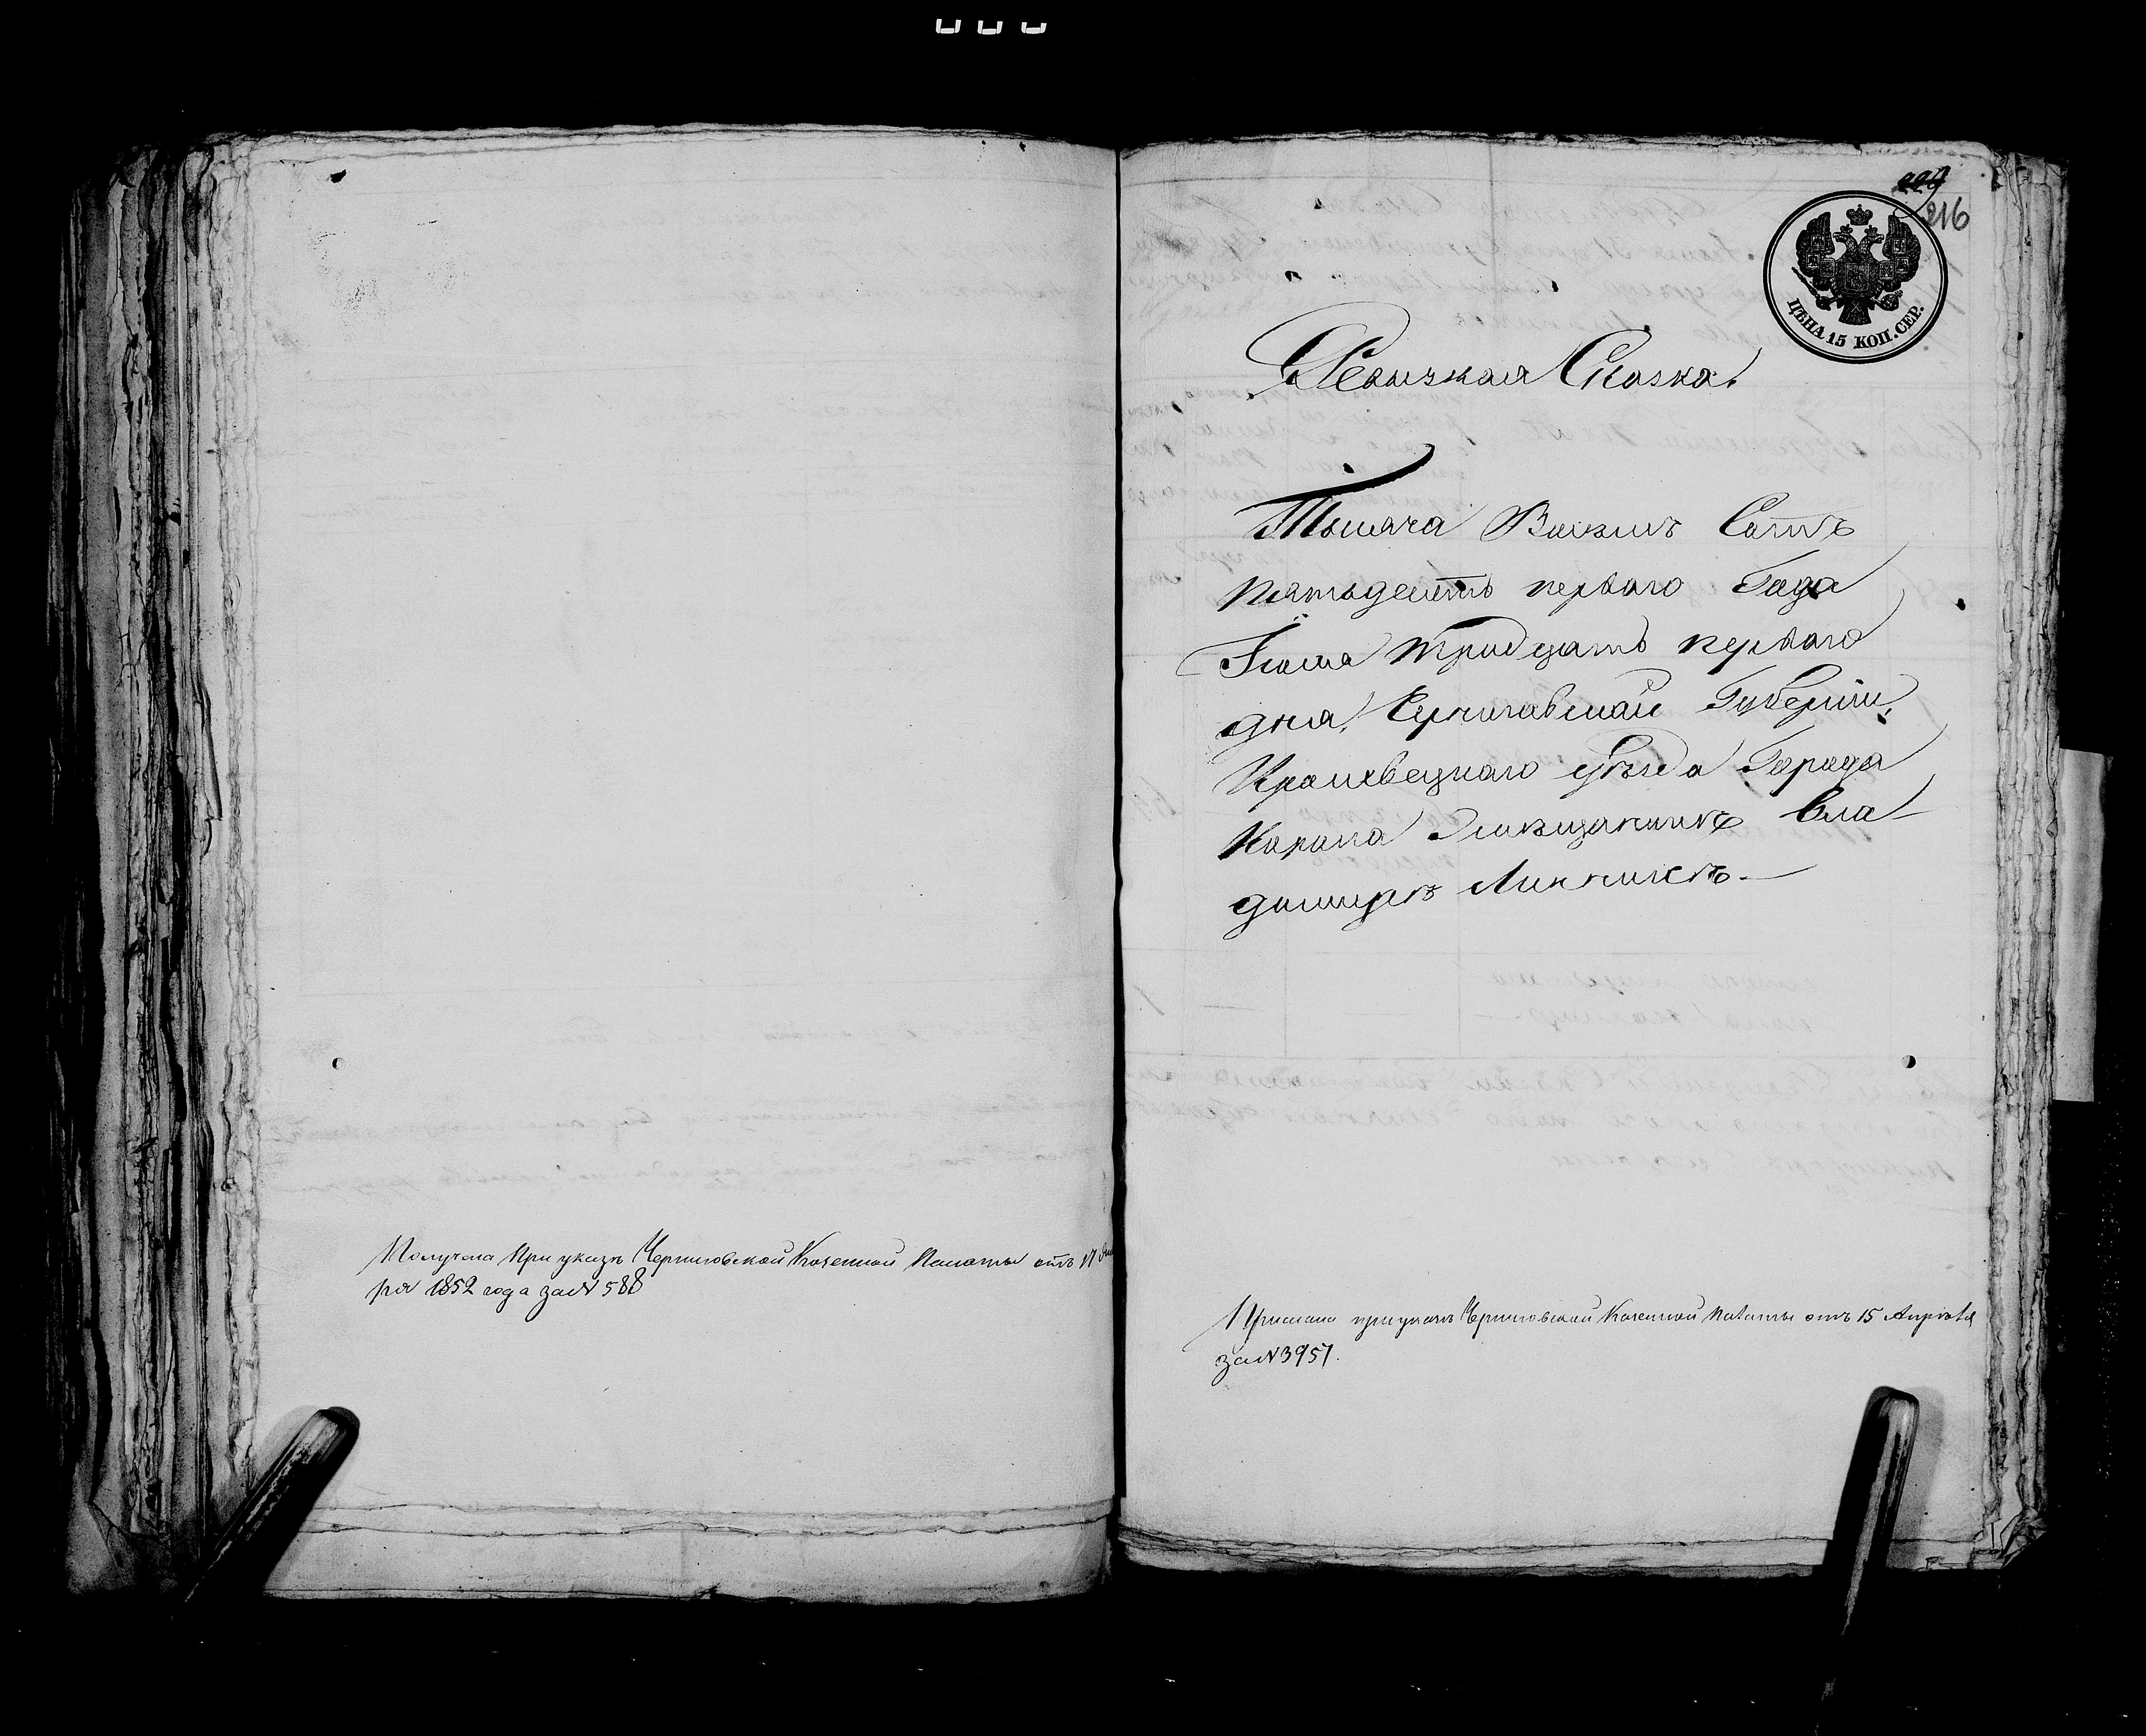 Получена при указѣ Черниговской Казенной Палаты отъ 17 Янва
ря 1852 года за № 588
229
216
ЦѢНА 15 КОП. СЕР.
Ревизкая Сказка.
Тысяча Восѣмъ Сотъ
пятьдесятъ перваго Года
Іюля тридцать перваго
дня, Черниговской Губерніи,
Кролевецкаго уѣзда Города
Коропа Вла
димиръ
Прислана при указѣ Черниговской Казенной Палаты отъ 15 Апрѣля
за № 3957.